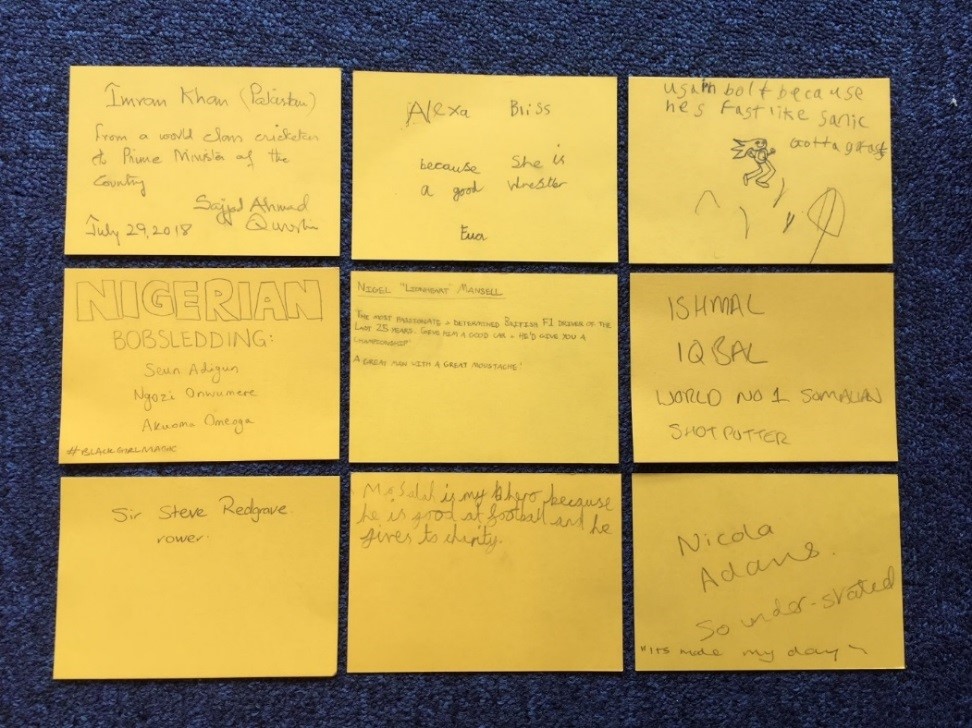 Imran Khan (Pakistan)
From a world class cricketer
to Prime Minister of the
Country
Sajjad Ahmad
Qureshi
July 29, 2018
Alexa Bliss
because She is
a good Wrestler
Eua
usain bolt because
hes fast like sanic
gotta go fast
NIGERIAN
BOBSLEDDING:
Seun Adigun
Ngozi Onwumere
Akuoma Omeoga
#BLACKGIRLMAGIC
NIGEL "LIONHEART" MANSELL
"THE MOST PASSIONATE + DETERMINED BRITISH F1 DRIVER OF THE
LAST 25 YEARS. GIVE HIM A GOOD CAR + HE'D GIVE YOU A
CHAMPIONSHIP"
A GREAT MAN WITH A GREAT MOUSTACHE'
ISHMAL
IQBAL
WORLD NO 1 SOMALIAN
SHOTPUTTER
Sir Steve Redgrave
rower.
Mo Salah is my hero because
he is good at football and he
gives to charity.
Nicola
Adams.
So under-stated
"its made my day"